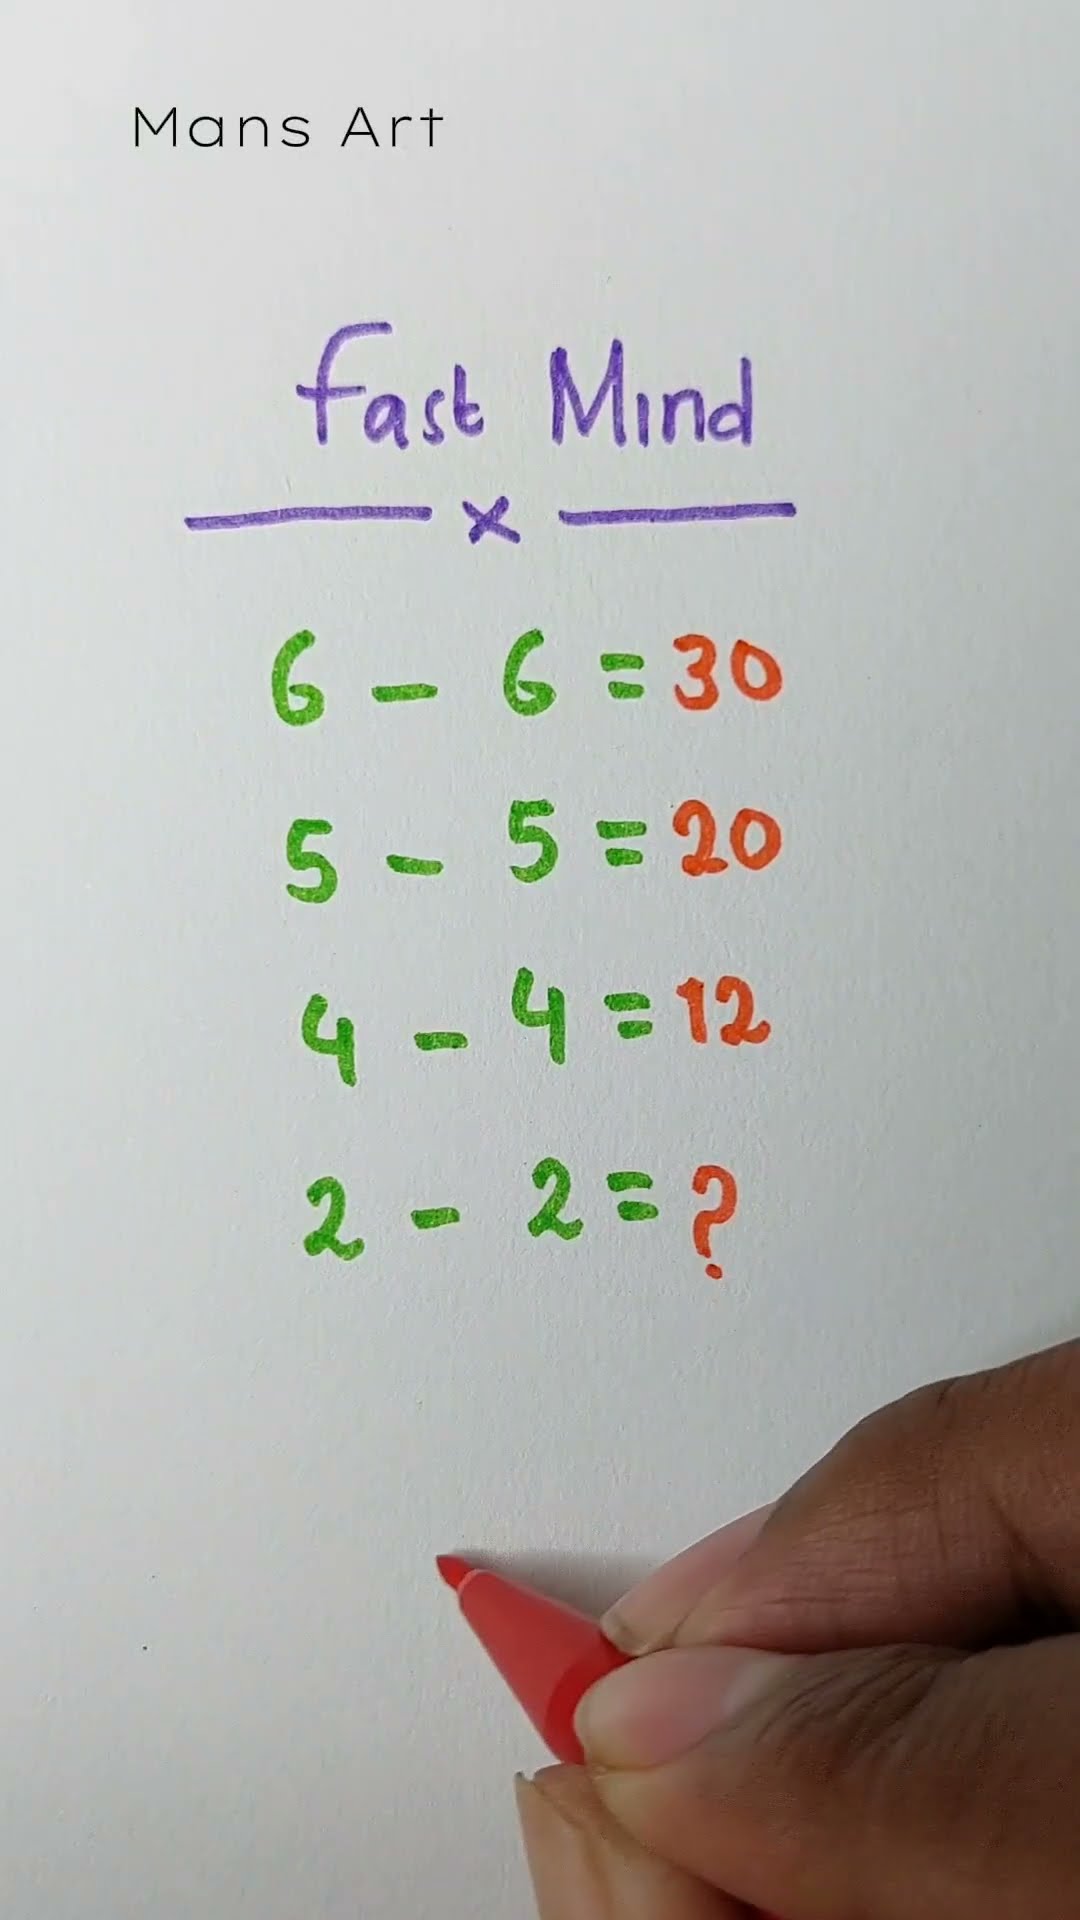 Mans Art
Fast Mind
— x —
6 - 6 = 30
5 - 5 = 20
4 - 4 = 12
2 - 2 = ?